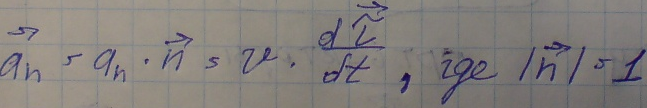 $\vec{a}_n = a_n \cdot \vec{n} = v \cdot \frac{d\vec{\tau}}{dt}$, где $|\vec{n}| = 1$